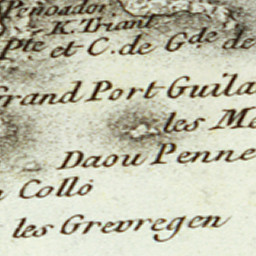 Penoador
K. Triant
Pte et C. de Gde de
Grand Port Guila
les Me
Daou Penne
Collo
les Grevregen